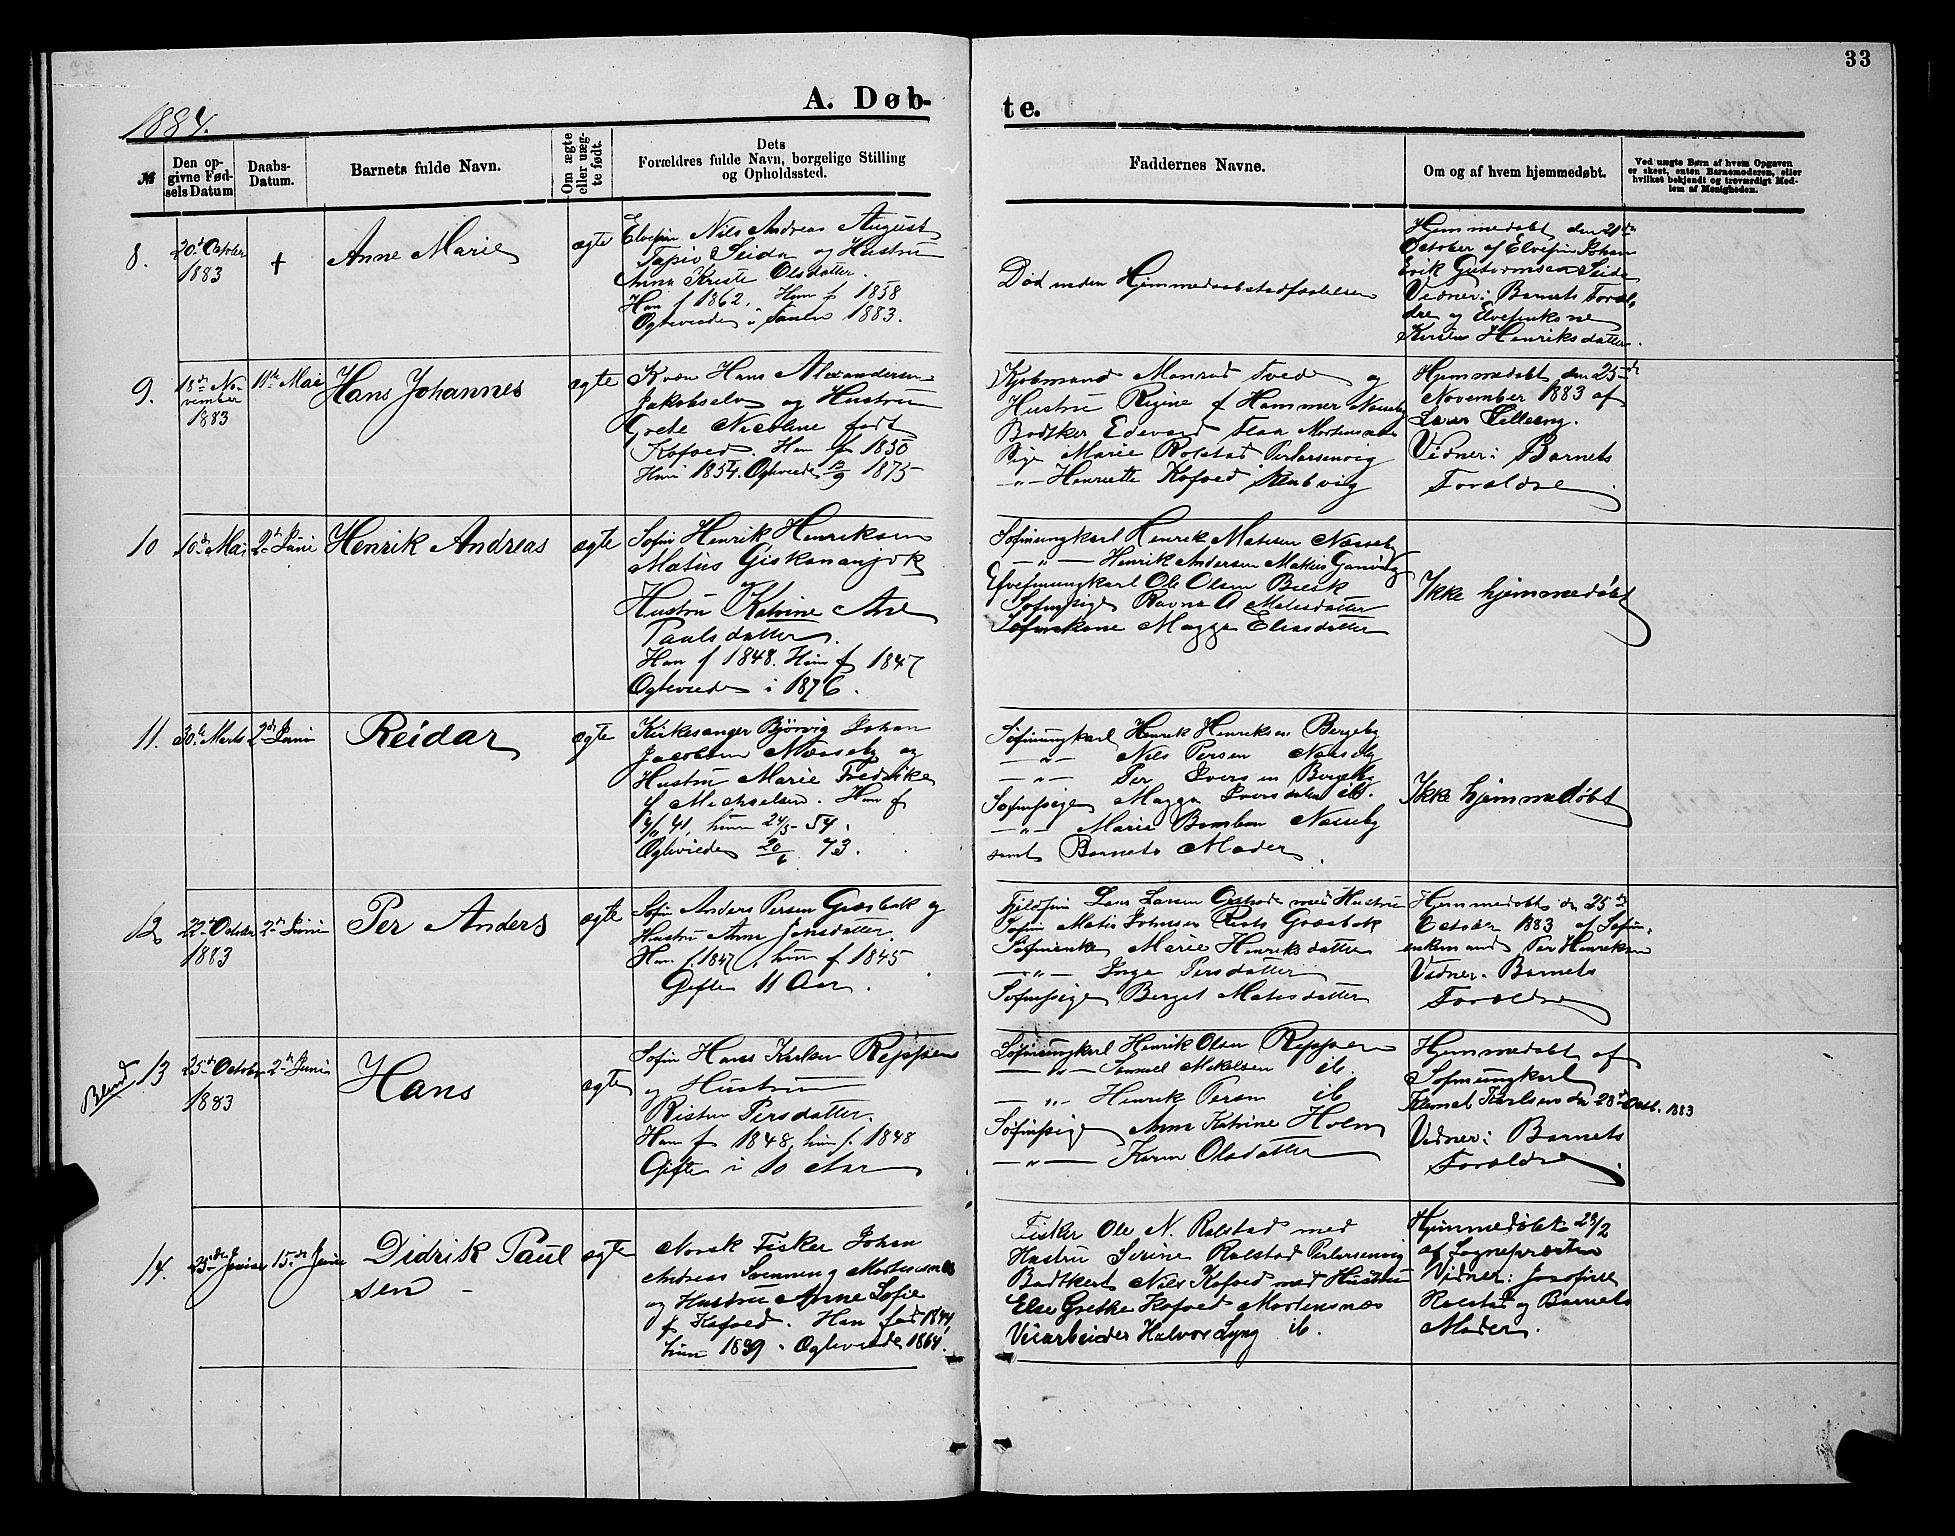 33
1884.
A. Døb-
te.
№
Den op-
givne Fød-
sels Datum
Daabs-
Datum.
Barnets fulde Navn.
Om ægte
eller uæg-
te født.
Dets
Forældres fulde Navn, borgelige Stilling
og Opholdssted.
Faddernes Navne.
Om og af hvem hjemmedøbt.
Ved uægte Børn af hvem Opgaven
er skeet, enten Barnemoderen, eller
hvilket bekjendt og troværdigt Med-
lem af Menigheden.
8.
20de October
1883
+
Anne Marie
ægte
Elvefin Nils Andreas August
Tapio Seida og Hustru
Anna Kriste Olsdatter.
Han f 1862. Hun f 1858
Ægteviede i 1883.
Død uden
Hjemmedøbt den 21de
October af Elvefin Johan
Erik Guttormsen Seida
Vidner: Barnets Foræl-
dre og
Kirsten Henriksdatter.
9.
18de No-
vember
1883
11te Mai
Hans Johannes
ægte
Kvæn Hans Alexandersen
Jakobselv og Hustru
Grete Nicoline født
Kofoed. Han f 1850
Hun 1854. Ægteviede 12/9 1875
Kjøbmand Monrad Tvede og
Hustru Regine f Hammer Næsseby
Bødker Edevard Flaa Mortensnæs
Pige Marie Rolstad Perlarsenvig
-"- Henriette Kofoed
Hjemmedøbt den 25de
November 1883 af
Lilleeng.
Vidner: Barnets
Forældre
10
10de Mai
2den Juni
Henrik Andreas
ægte
Søfin Henrik Henriksen
Matius
og
Hustru Katrine Ane
Paulsdatter.
Han f 1848. Hun f 1847
Ægteviede i 1876.
Søfinungkarl Henrik Matisen Næsseby
-"- Henrik Andersen Matius
Elvefinungkarl Ole Olsen
Søfinpige Ravna A Matisdatter
Søfinkone Magga Eliasdatter
Ikke hjemmedøbt
11.
30te Marts
2den Juni
Reidar
ægte
Kirkesanger Bjørvig Johan
Jacobsen Næsseby og
Hustru Marie Fredrike
f Michaelsen. Han f
4/11 41, hun 24/5 - 54.
Ægteviede 20/6 73.
Søfinungkarl Henrik Henriksen Bergeby
-"- Nils Persen Næsseby
-"- Per Iversen Bergeby
Søfinpige Magga Iversdatter ib.
-"- Marie Næsseby
samt Barnets Moder.
Ikke hjemmedøbt
12
22de October
1883
2den Juni
Per Anders
ægte
Søfin Anders Persen Græsbak og
Hustru Anne Jonsdatter.
Han f. 1847, hun f 1845
Gifte 11 Aar.
Fjeldfin Lars Larsen med Hustru
Søfin Mathis Johnsen Græsbak
Søfinenke Marie Henriksdatter
-"- Inga Persdatter
Søfinpige Berget Matisdatter
Hjemmedøbt den 25de
October 1883 af Søfin-
enkemand Per Henriksen
Vidner: Barnets
Forældre
Blind
13
25de October
1883
2den Juni
Hans
ægte
Søfin Hans Karlsen Reppen
og Hustru
Risten Persdatter.
Han f 1848, hun f. 1848
Gifte i 10 Aar
Søfinungkarl Henrik Olsen Reppen
-"- Samuel Mikelsen ib.
-"- Henrik Persen ib
Søfinpige Anne Katrine Holm
-"- Karen Olsdatter
Hjemmedøbt af
Søfinungkarl
Klemet Karlsen den 28de Octb. 1883
Vidner: Barnets
Forældre.
14.
15de Juni
Didrik Paul
sen
ægte
Norsk Fisker Johan
Andreas Svenning Mortensnæs
og Hustru Anne Sofie
f. Kofoed. Han fød 1844,
hun 1839. Ægteviede 1864.
Fisker Ole N. Rolstad med
Hustru Serine Rolstad Perlarsenvig
Bødkert Nils Kofoed med Hustru
Else Grethe Kofoed Mortensnæs
Veiarbeider Halvor Lyng ib.
Hjemmedøbt 23/2
af Sognepræsten
Vidner: Josefine
Rolstad og Barnets
Moder.